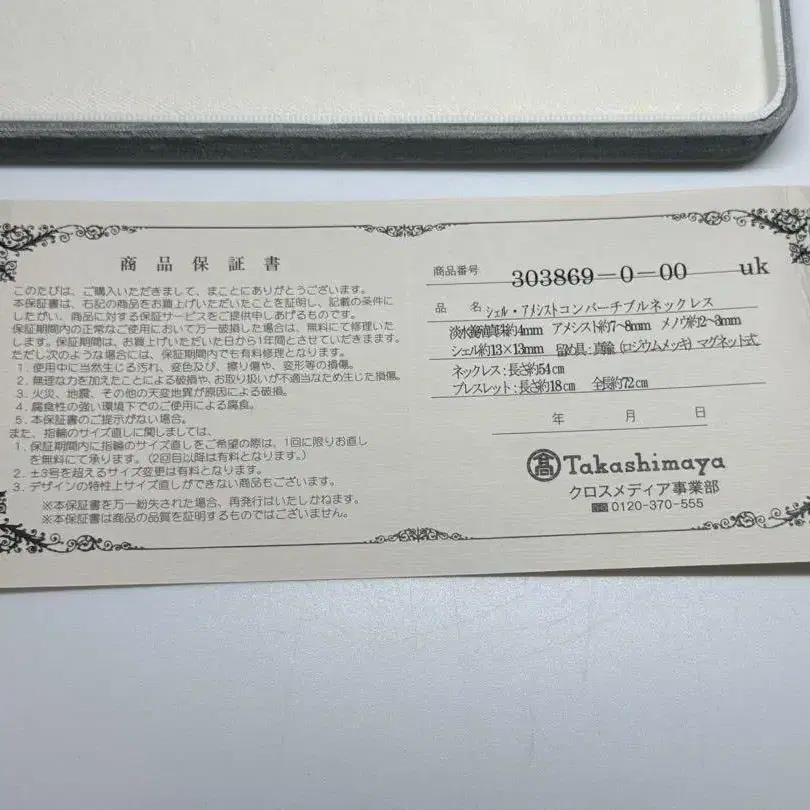 商品保証書
このたびは、ご購入いただきまして、まことにありがとうございます。
本保証書は、右記の商品をお買上げいただいたことを証明し、記載の条件に
したがい、商品に対する保証サービスをご提供申しあげるものです。
保証期間内の正常なご使用において万一破損した場合は、無料にて修理いた
します。保証期間は、お買上げいただいた日から1年間とさせていただきます。
ただし次のような場合には、保証期間内でも有料修理となります。
1. 使用中に当然生じる汚れ、変色及び、擦り傷や、変形等の損傷。
2. 無理な力を加えたことによる破損や、お取り扱いが不適当なため生じた損傷。
3. 火災、地震、その他の天変地異が原因による破損。
4. 腐食性の強い環境下でのご使用による腐食。
5. 本保証書のご提示がない場合。
また、指輪のサイズ直しに関しましては、
1. 保証期間内に指輪のサイズ直しをご希望の際は、1回に限りお直し
を無料にて承ります。(2回目以降は有料となります。)
2. ±3号を超えるサイズ変更は有料となります。
3. デザインの特性上サイズ直しができない商品もございます。
※本保証書を万一紛失された場合、再発行はいたしかねます。
※本保証書は商品の品質を証明するものではございません。
商品番号 303869-0-00 uk
品名 シェル・アメシストコンバーチブルネックレス
淡水養殖真珠約4mm アメシスト約7~8mm メノウ約2~3mm
シェル約13×13mm 留め具:真鍮(ロジウムメッキ)マグネット式
ネックレス:長さ約54cm
ブレスレット:長さ約18cm 全長約72cm
年 月 日
髙 Takashimaya
クロスメディア事業部
0120-370-555